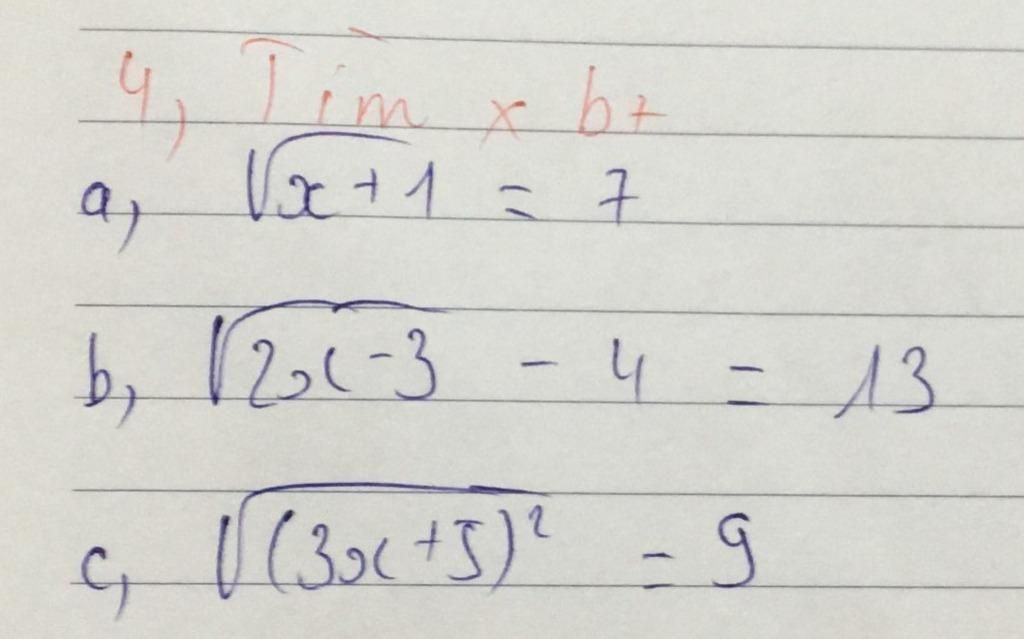 4, Tìm x bt
a, √x+1 = 7
b, √2x-3 - 4 = 13
c, √(3x+5)² = 9